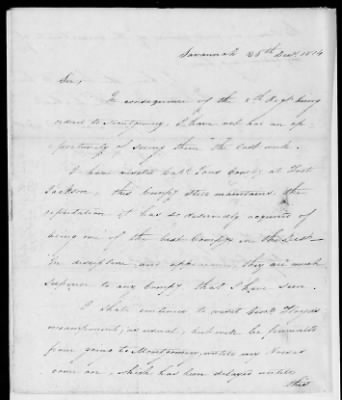 Savannah 25th Decr. 1814
Sir,
In consequence of the 8th Regt. being
orderd to Montgomery, I have not has an op-
portunity of seeing them the last week.
I have visited Capt. Compy at Fort
Jackson, this Compy still maintains the
reputation it has so deservedly acquired of
being one of the best Compys in the Dist
In discipline and appearance, they are much
Superior to any Compy that I have seen.
I shall continue to visit Genl. Floyds
encampment, as usual, but will be
from going to Montgomery, untill my Horses
come on, which has been delayed untill
this